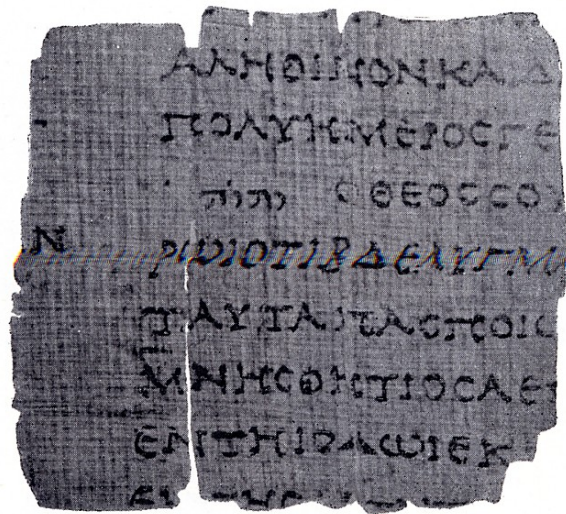 ΑΛΗΘΙΝΟΝΚΑΙΔ
ΠΟΛΥΗΜΕΡΟϹΓΕ
יהוה ΟΘΕΟϹϹΟΥ
Ν ΡΩΙΟΤΙΒΔΕΛΥΓΜΑ
ΤΑΥΤΑΠΑϹΠΟΙΩ
ΜΝΗϹΘΗΤΙΟϹΑΕΠ
ΕΝΤΗΙΟΔΩΙΕΚ